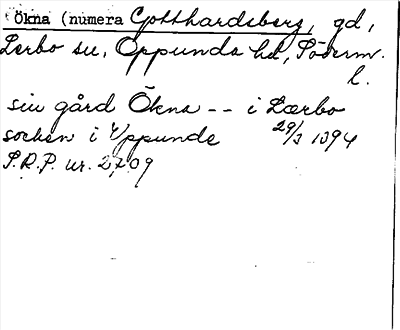 Ökna (numera Gotthardsberg, gd,
Lerbo sn, Oppunda hd, Söderm.
l.
sin gård Ökna -- i Lærbo
socken i Uppunde 29/3 1394
S.R.P. nr. 2709